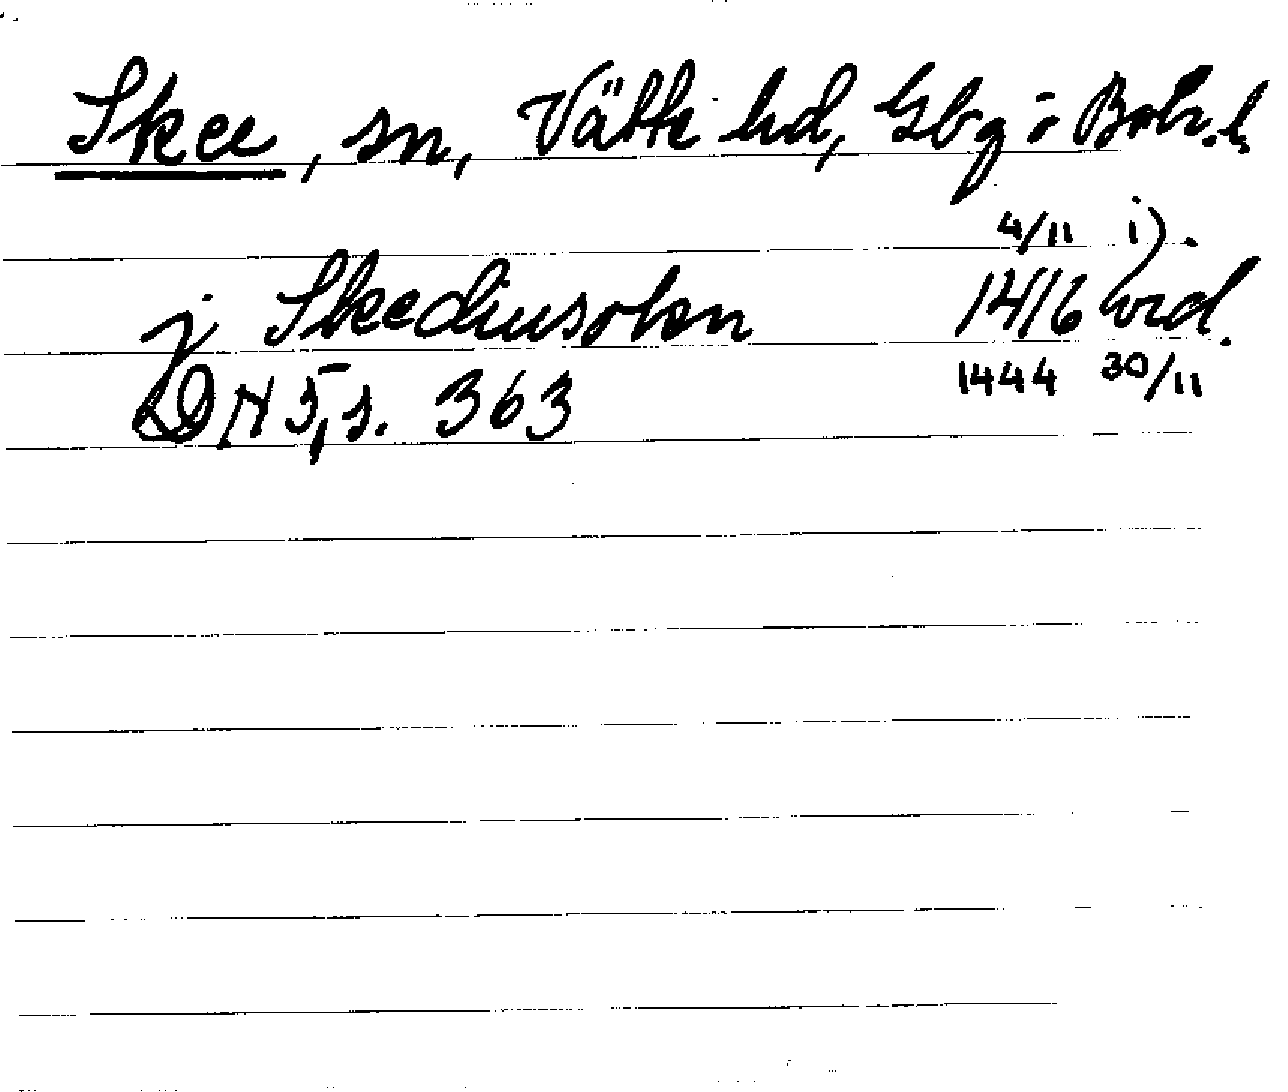 Skee, sn, Vätte hd, Gbg o Boh. l.
4/11 i).
j Skediusokn 1416 vid.
1444 30/11
DN 5, s. 363